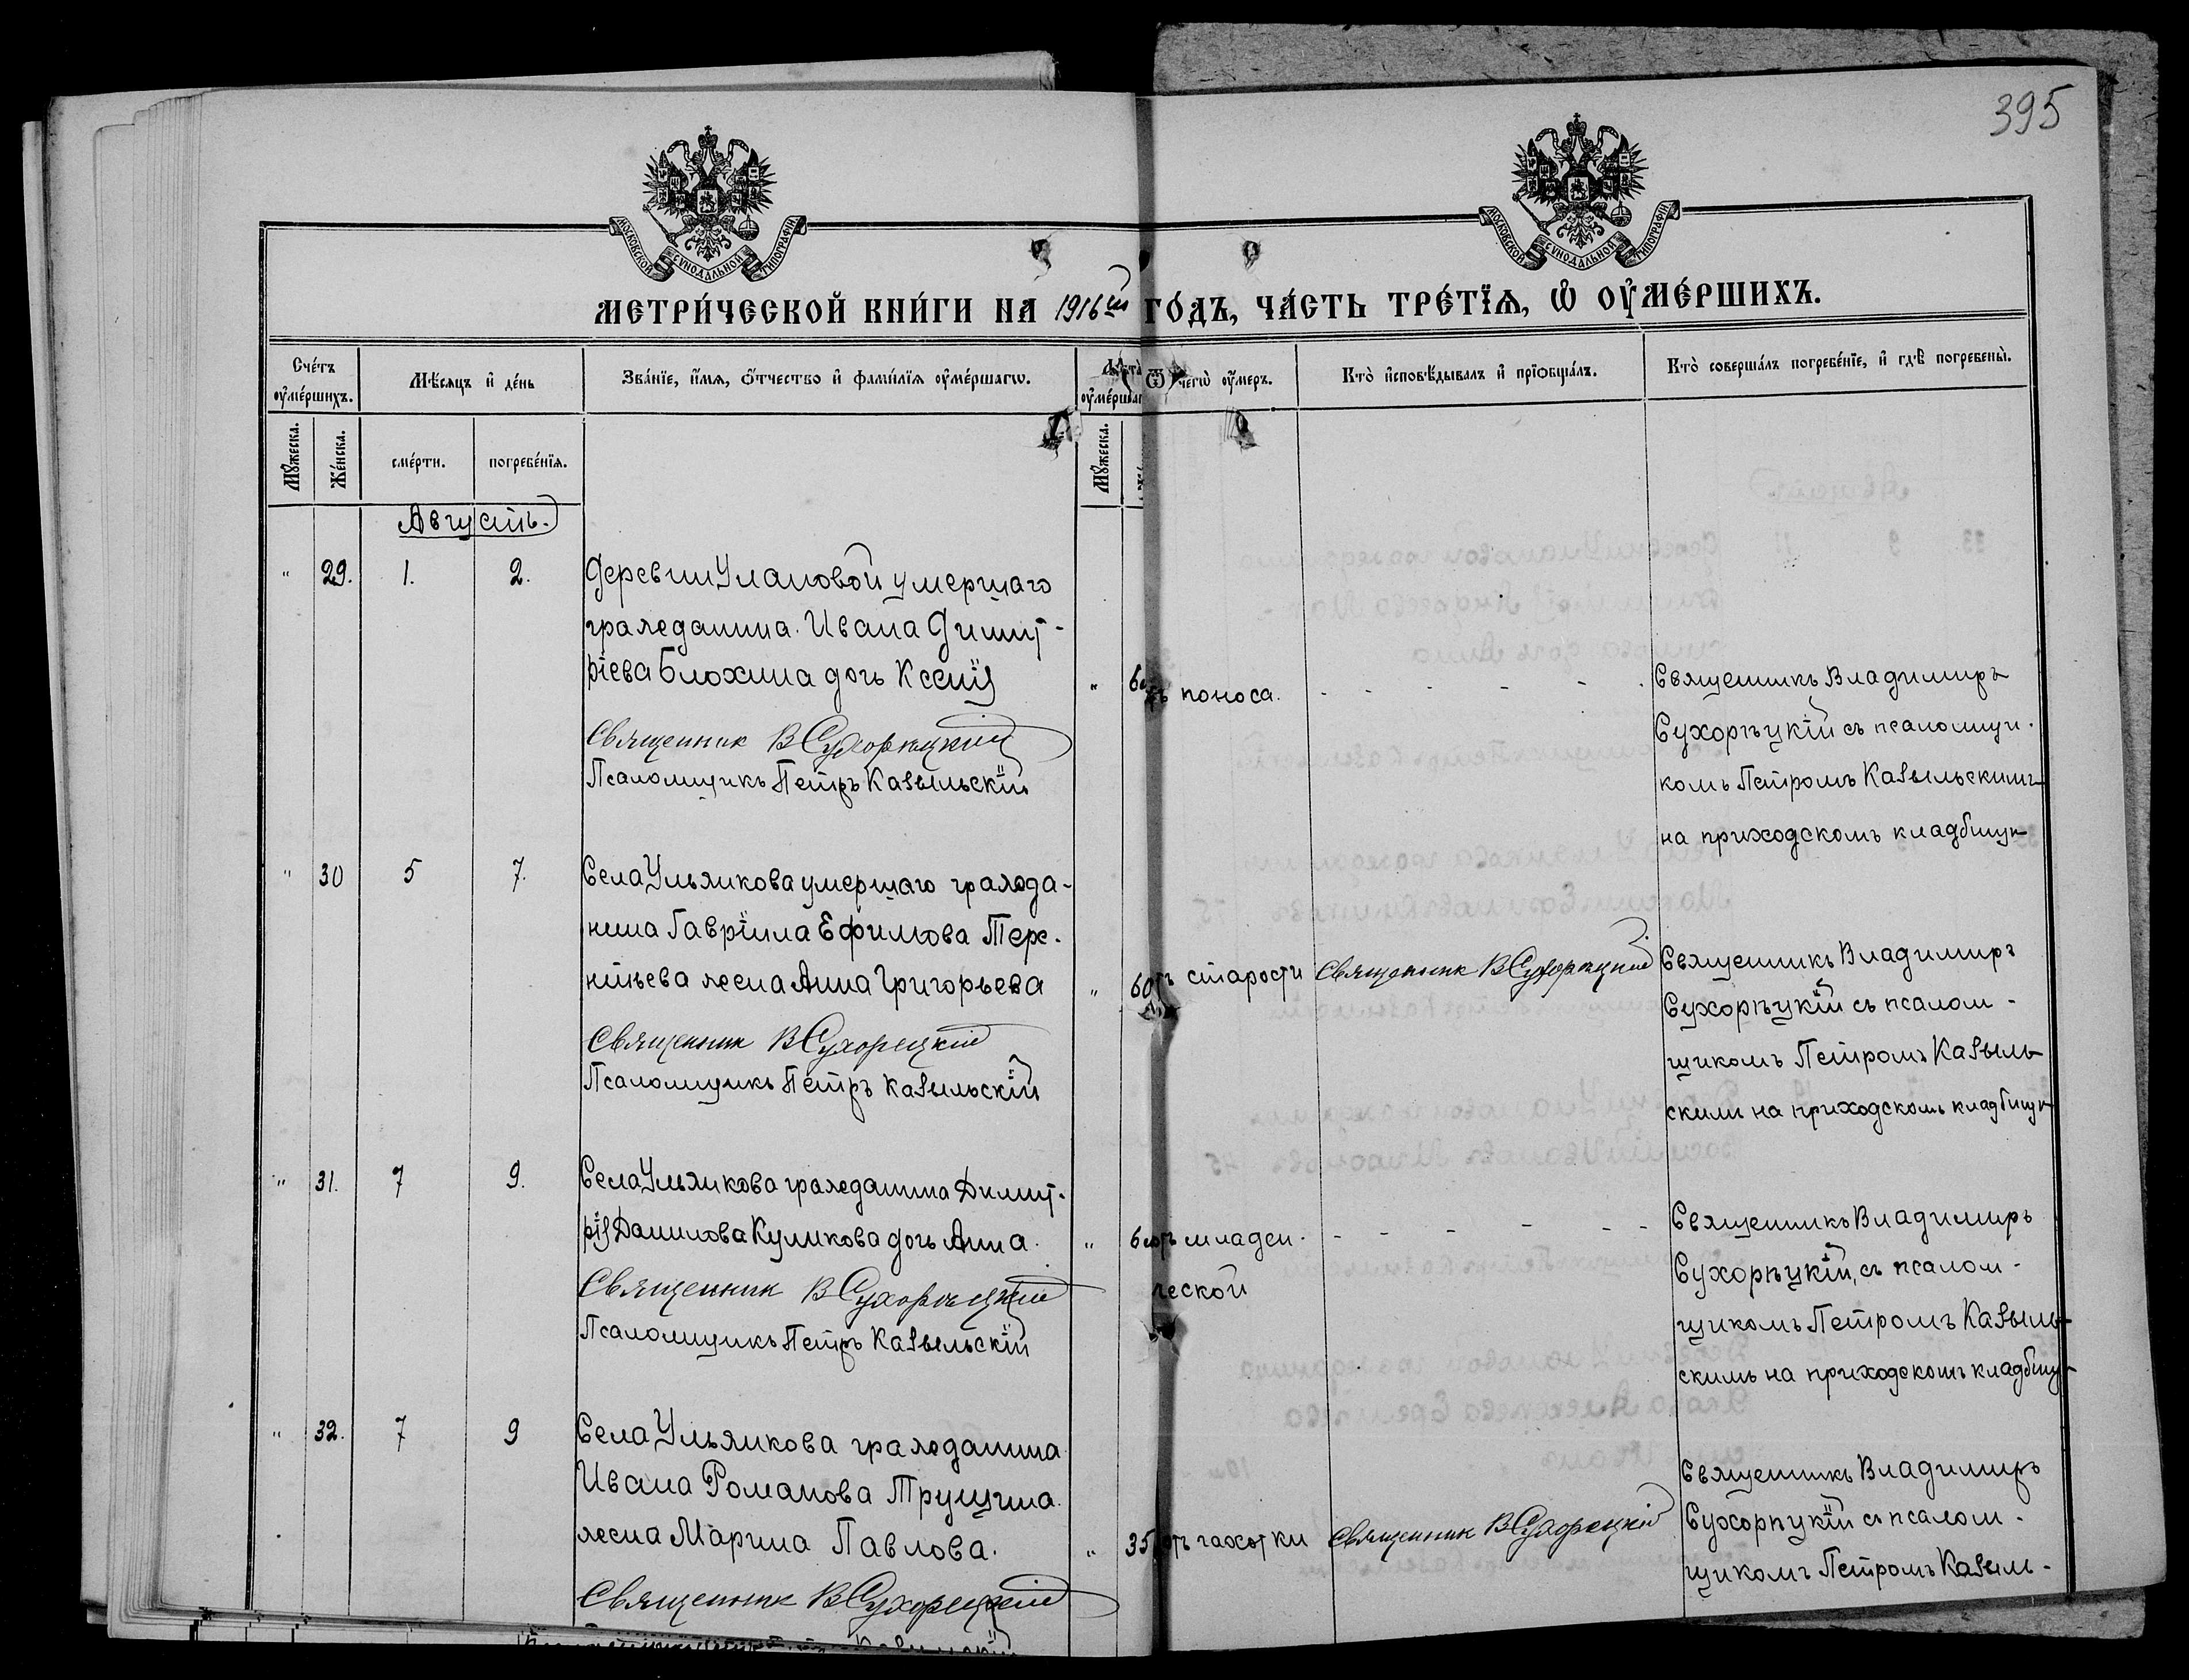 395
МОСКОВСКОЙ СУНОДАЛЬНОЙ ТИПОГРАФІИ
МОСКОВСКОЙ СУНОДАЛЬНОЙ ТИПОГРАФІИ
МЕТРИ́ЧЕСКОЙ КНИ́ГИ НА 1916й ГО́ДЪ, ЧА́СТЬ ТРЕ́ТЇѦ, Ѽ ОУ҆МЕ́РШИХЪ.
Сче́тъ оу҆ме́ршихъ.
Мѣ́сяцъ и҆ де́нь
Зва́нїе, и҆́мѧ, ѻ҆́тчество и҆ фами́лїѧ оу҆ме́ршагѡ.
Лѣта оу҆ме́ршаг
Ѿ чегѡ̀ оу҆́меръ.
Кто̀ и҆сповѣ́дывалъ и҆ прїѡбща́лъ.
Кто̀ соверша́лъ погребе́нїе, и҆ гдѣ̀ погребены̀.
Мꙋ́жеска.
Же́нска.
сме́рти.
погребе́нїѧ.
Мꙋ́жеска.
Августъ.
" 29. 1. 2.
Деревни Улановой умершаго
гражданина Ивана Димит-
рiева Блохина дочь Ксенiя
Священник В Сухорѣцкий
Псаломщикъ Петръ Кавыльскiй
" поноса. - - - - - -
Священникъ Владимиръ
Сухорѣцкiй съ псаломщи-
комъ Петромъ Кавыльскимъ
на приходскомъ кладбищѣ
" 30 5 7.
Села Ульянкова умершаго гражда-
нина Гаврiила Ефимова Тере-
нтьева жена Анна Григорьева
Священник В Сухорецкiй
Псаломщикъ Петръ Кавыльскiй
" 60 старости
Священник В Сухорецкий
Священникъ Владимиръ
Сухорѣцкiй съ псалом-
щикомъ Петромъ Кавыль
скимъ на приходскомъ кладбищѣ
" 31. 7 9.
Села Ульянкова гражданина Димит-
рiя Данилова Куликова дочь Анна.
Священник В Сухорѣцкiй
Псаломщикъ Петръ Кавыльскiй
" младен-
ческой
- - - - - -
Священникъ Владимиръ
Сухорѣцкiй, съ псалом-
щикомъ Петромъ Кавыль-
скимъ на приходскомъ кладбищѣ
" 32. 7 9
Села Ульянкова гражданина
Ивана Романова Трущина
жена Марина Павлова.
Священник В Сухорецкiй
" 35 отъ чахотки
Священник В Сухорецкiй
Священникъ Владимиръ
Сухорѣцкiй съ псалом-
щикомъ Петромъ Кавыль-